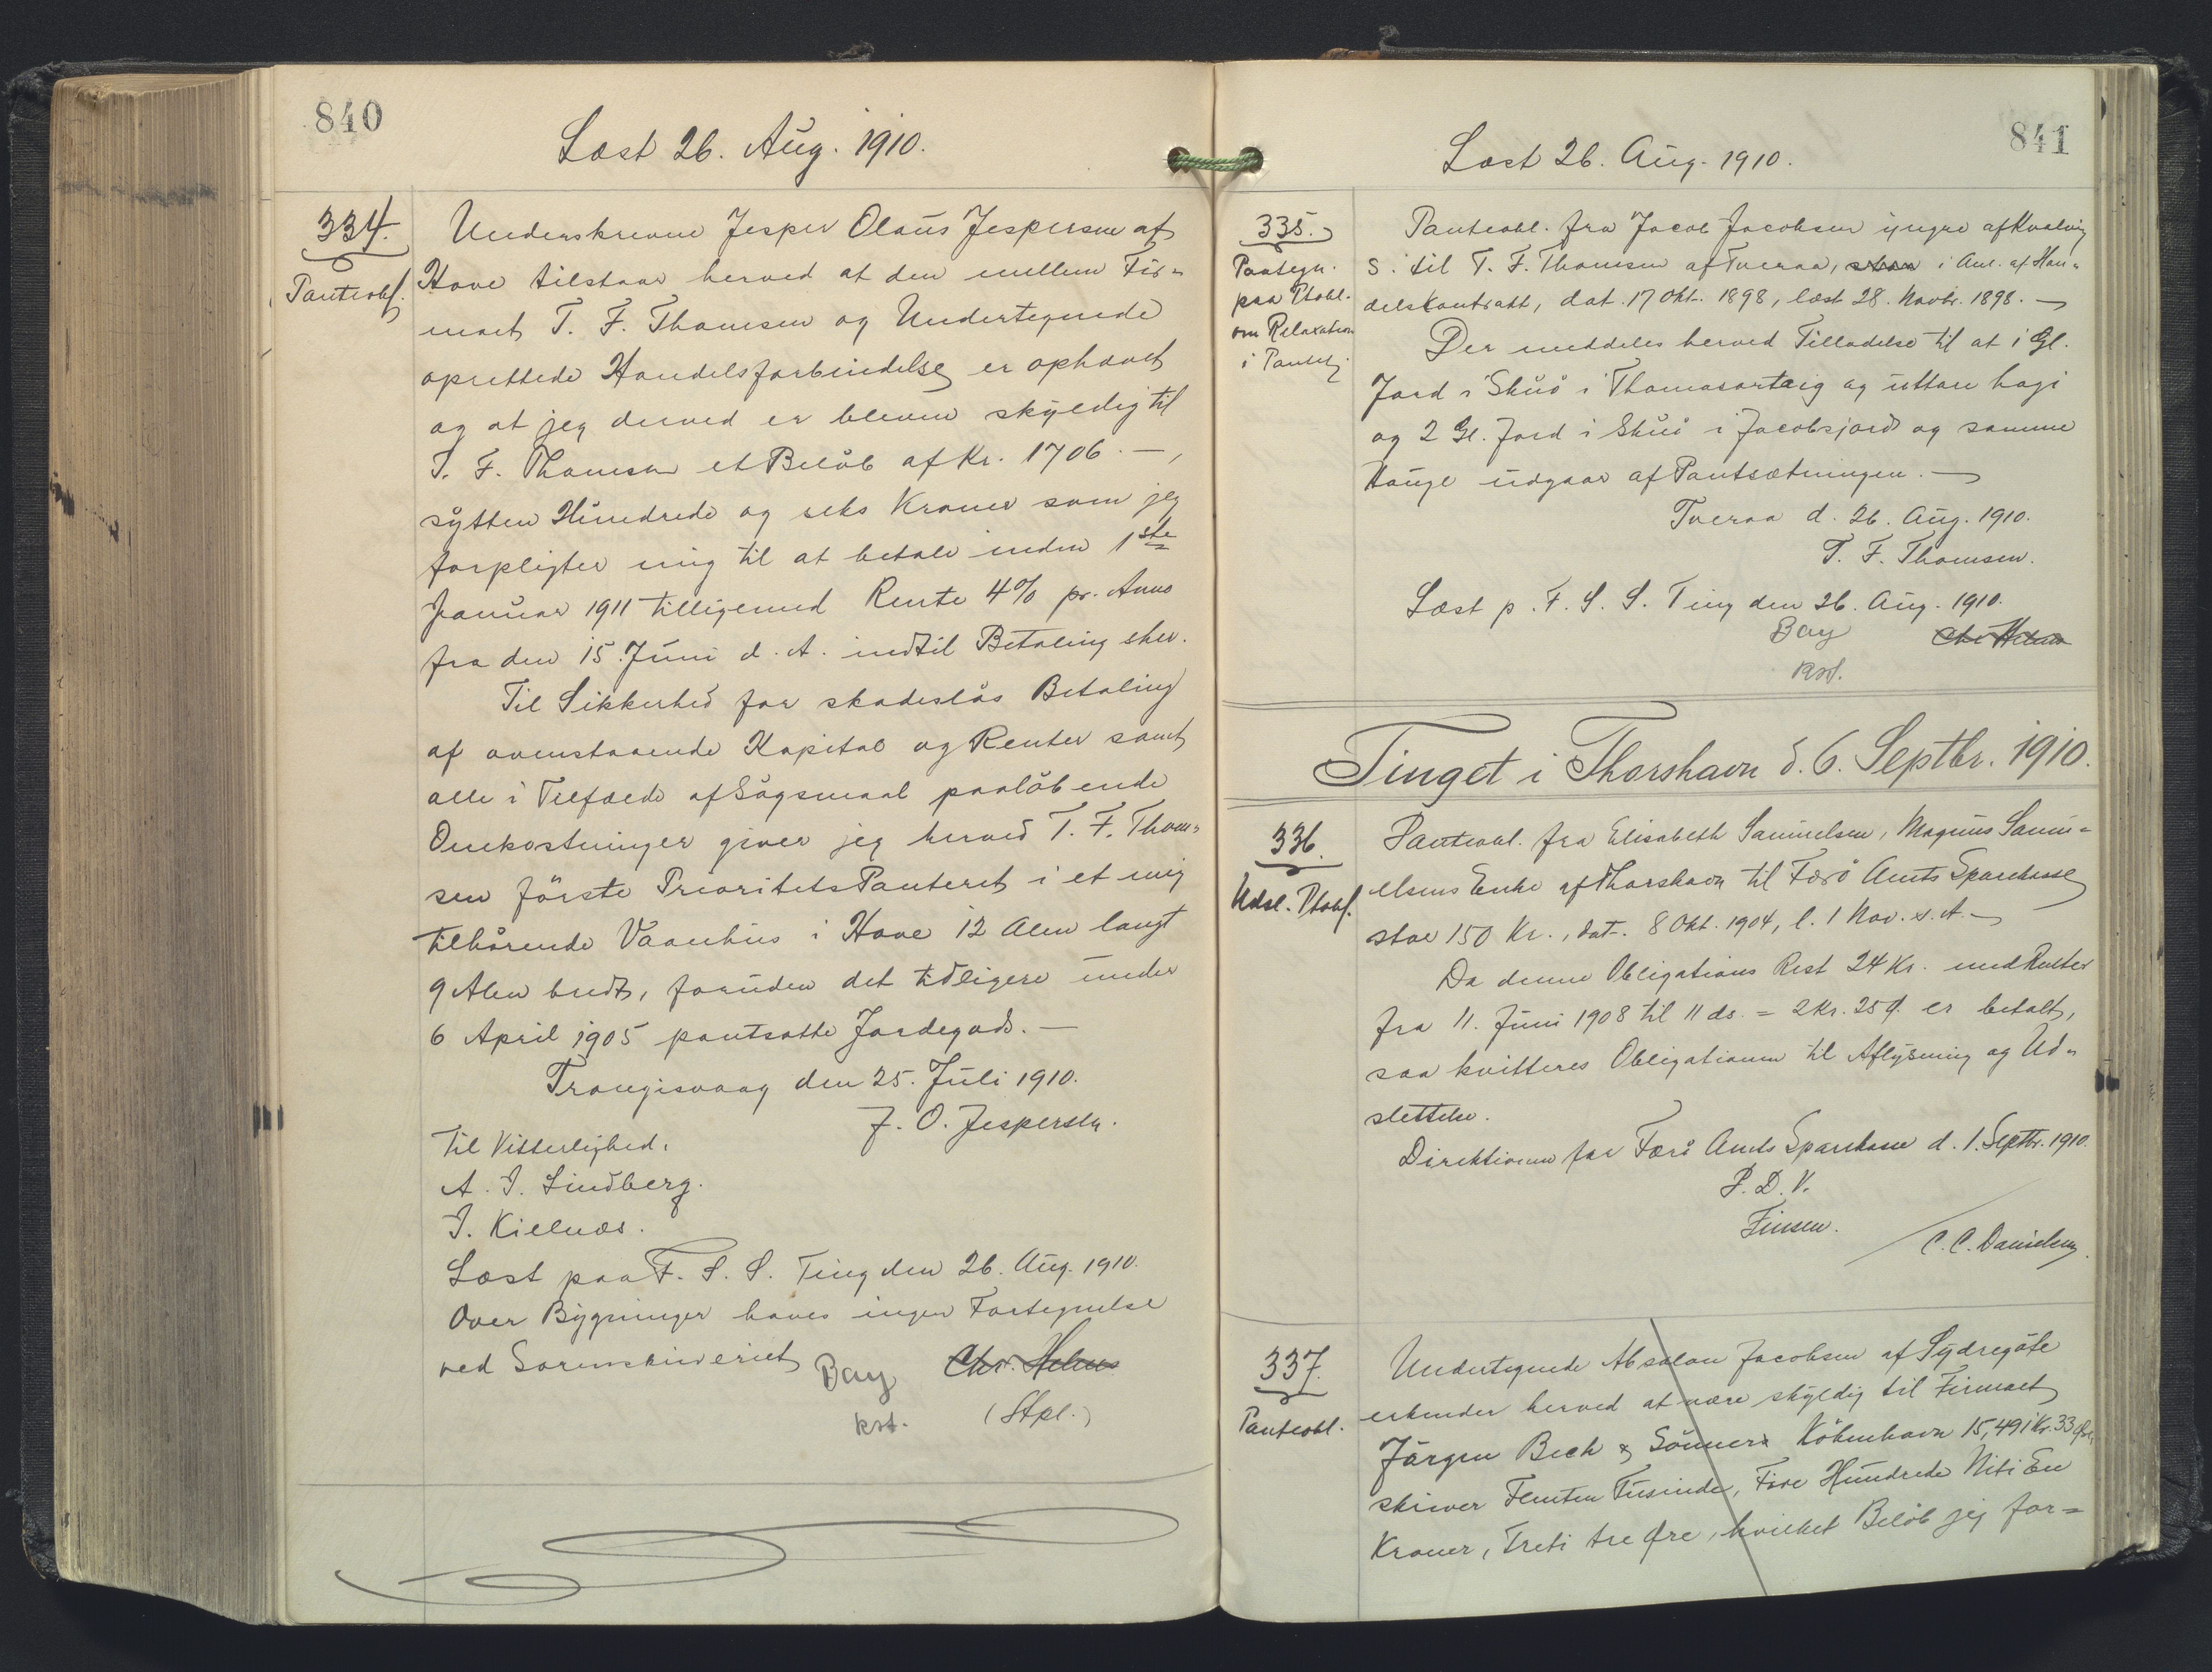 840
Læst 26. Aug. 1910.
334.
Panteobl.
Underskrevne Jesper Olaus Jespersen af
Hove tilstaar herved at den mellem Fir-
maet T. F. Thomsen og Undertegnede
oprettede Handelsforbindelse er ophævet
og at jeg derved er bleven skyldig til
T. F. Thomsen et Beløb af Kr. 1706.—,
sytten Hundrede og seks Kroner som jeg
forpligter mig til at betale inden 1ste
Januar 1911 tilligemed Rente 4% pr. Anno
fra den 15. Juni d. A. indtil Betaling sker.
Til Sikkerhed for skadesløs Betaling
af ovenstaaende Kapital og Renter samt
alle i Tilfælde af Søgsmaal paaløbende
Omkostninger giver jeg herved T. F. Thom-
sen første Prioritets Panteret i et mig
tilhørende Vaanhus i Hove 12 Alen langt
9 Alen bredt, foruden det tidligere under
6 April 1905 pantsatte Jordegods.—
Trangisvaag den 25. Juli 1910.
J. O. Jespersen.
Til Vitterlighed:
A. I. Lindberg.
J. Kjelnæs.
Læst paa F. S. S. Ting den 26. Aug. 1910.
Over Bygninger haves ingen Fortegnelse
ved Sorenskriveriet
Bay
kst.
Chr. Helms
(Stpl.)
841
Læst 26. Aug. 1910.
335.
Pategn.
paa Ptobl.
om Relaxation
i Pantet.
Panteobl. fra Jacob Jacobsen yngre af Kvalvig
S. til T. F. Thomsen af Tveraa, i Anl. af Han-
delskontrakt, dat. 17 Okt. 1898, læst 28. Novbr. 1898.—
Der meddeles herved Tilladelse til at 1 Gl.
Jord i Skuø i Thomasartaig og uttare hagi
og 2 Gl. Jord i Skuø i Jacobsjord og samme
Hauge udgaar af Pantsætningen.—
Tveraa d. 26. Aug. 1910.
T. F. Thomsen.
Læst p. F. S. S. Ting den 26. Aug. 1910.
Bay
kst.
Chr. Helms
Tinget i Thorshavn d. 6. Septbr. 1910.
336.
Udsl. Ptobl.
Panteobl. fra Elisabeth Samuelsen, Magnus Samu-
elsens Enke af Thorshavn til Færø Amts Sparekasse
stor 150 Kr., dat. 8 Okt. 1904, l. 1 Nov. s. A.—
Da denne Obligations Rest 24 Kr. med Renter
fra 11. Juni 1908 til 11 ds. = 2 Kr. 25 Ø. er betalt,
saa kvitteres Obligationen til Aflysning og Ud-
slettelse.
Direktionen for Færø Amts Sparekasse d. 1. Septbr. 1910.
P. D. V.
Finsen.
C. C. Danielsen.
337.
Panteobl.
Undertegnede Absalon Jacobsen af Sydregøte
erkender herved at være skyldig til Firmaet
Jørgen Bech & Sønner København 15,491 Kr. 33 Øre,
skriver Femten Tusinde, Fire Hundrede Niti En
Kroner, Treti tre Øre, hvilket Beløb jeg for-